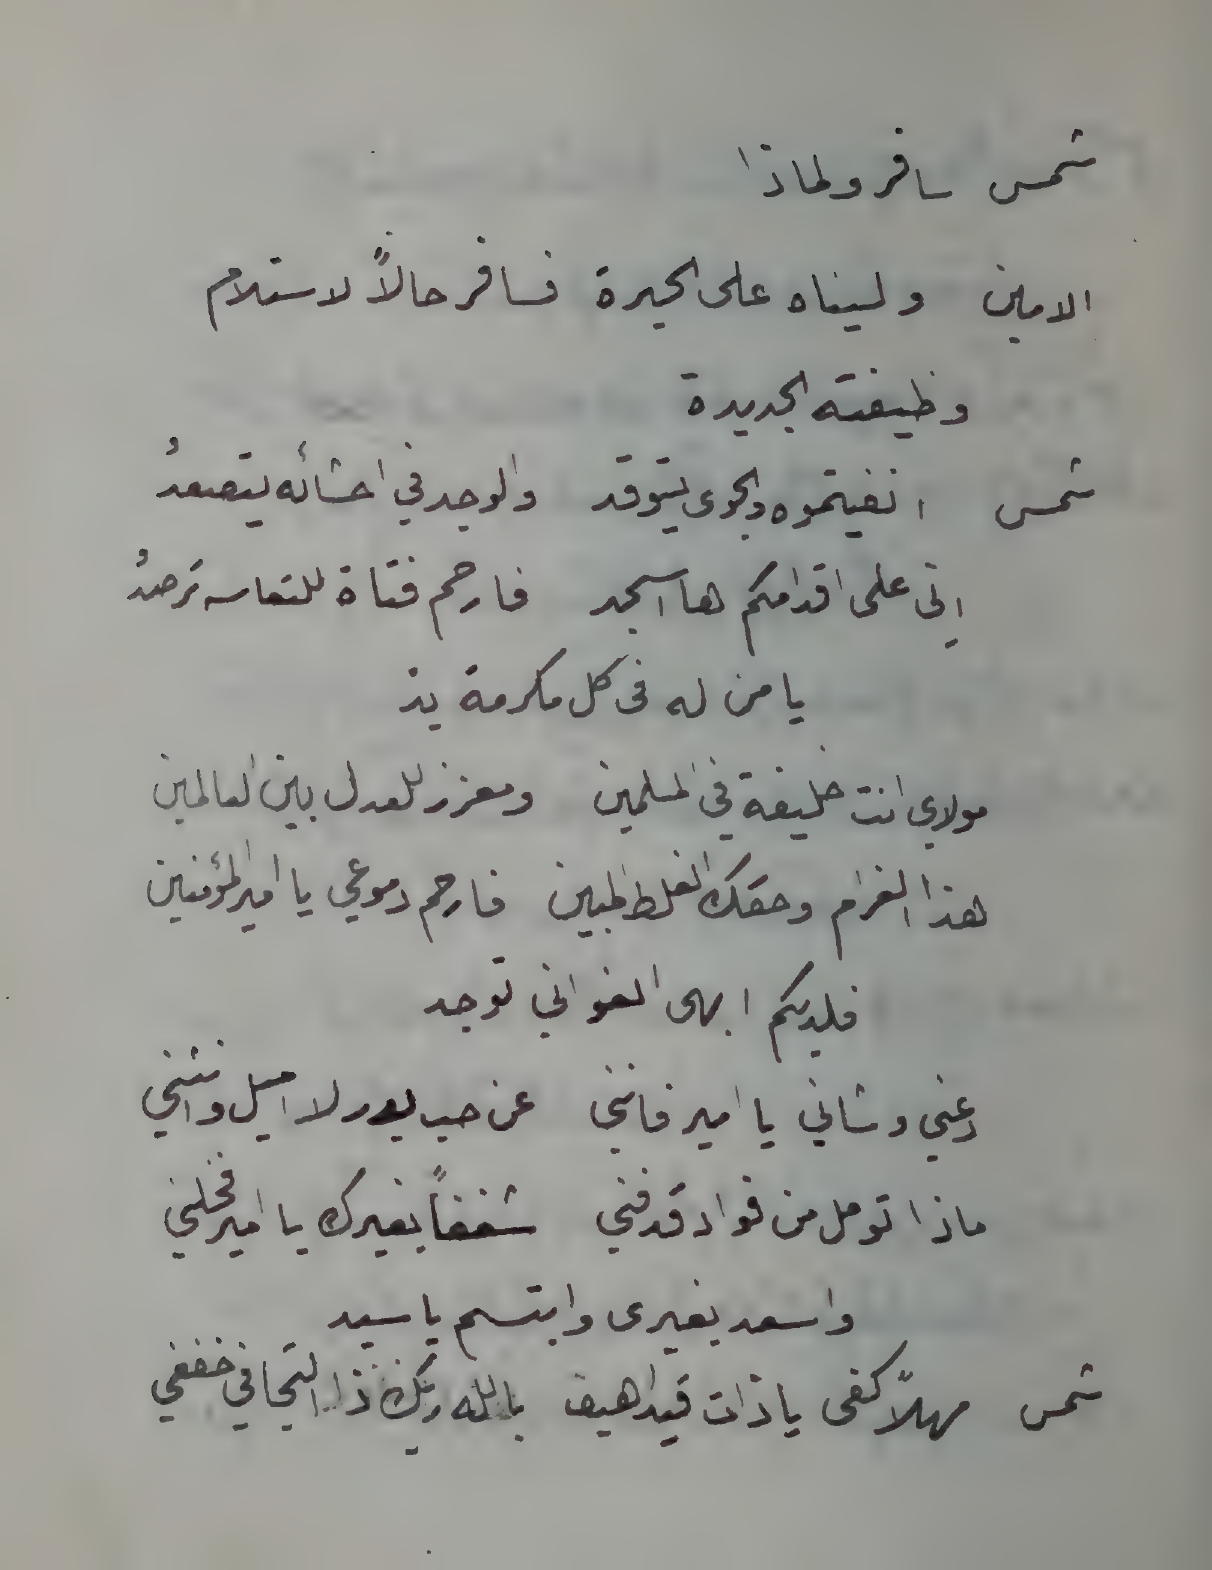 شمس سافر ولماذا
الامين وليناه على الحيرة فسافر حالاً لاستلام
وظيفته الجديدة
شمس انفيتموه والجوى يتوقد والوجد في احشائه يتصعدُ
اني على اقدامكم ها اسجد فارحم فتاة للتعاسه ترصدُ
يا من له في كل مكرمة يد
مولاي انت خليفة في المسلمين ومعزز للعدل بين العالمين
هذا الغرام وحقك الغلط المبين فارحم دموعي يا امير المؤمنين
فلديكم ابهى الغواني توجد
دعني وشاني يا امير فانني عن حب بدر لا اميل وانثني
ماذا تومل من فواد قد فني شغفاً بغيرك يا امير فخلني
واسعد بغيرى وابتسم يا سيد
شمس مهلاً كفى يا ذات قيد اهيف بالله ربك ذا التجافي خففي